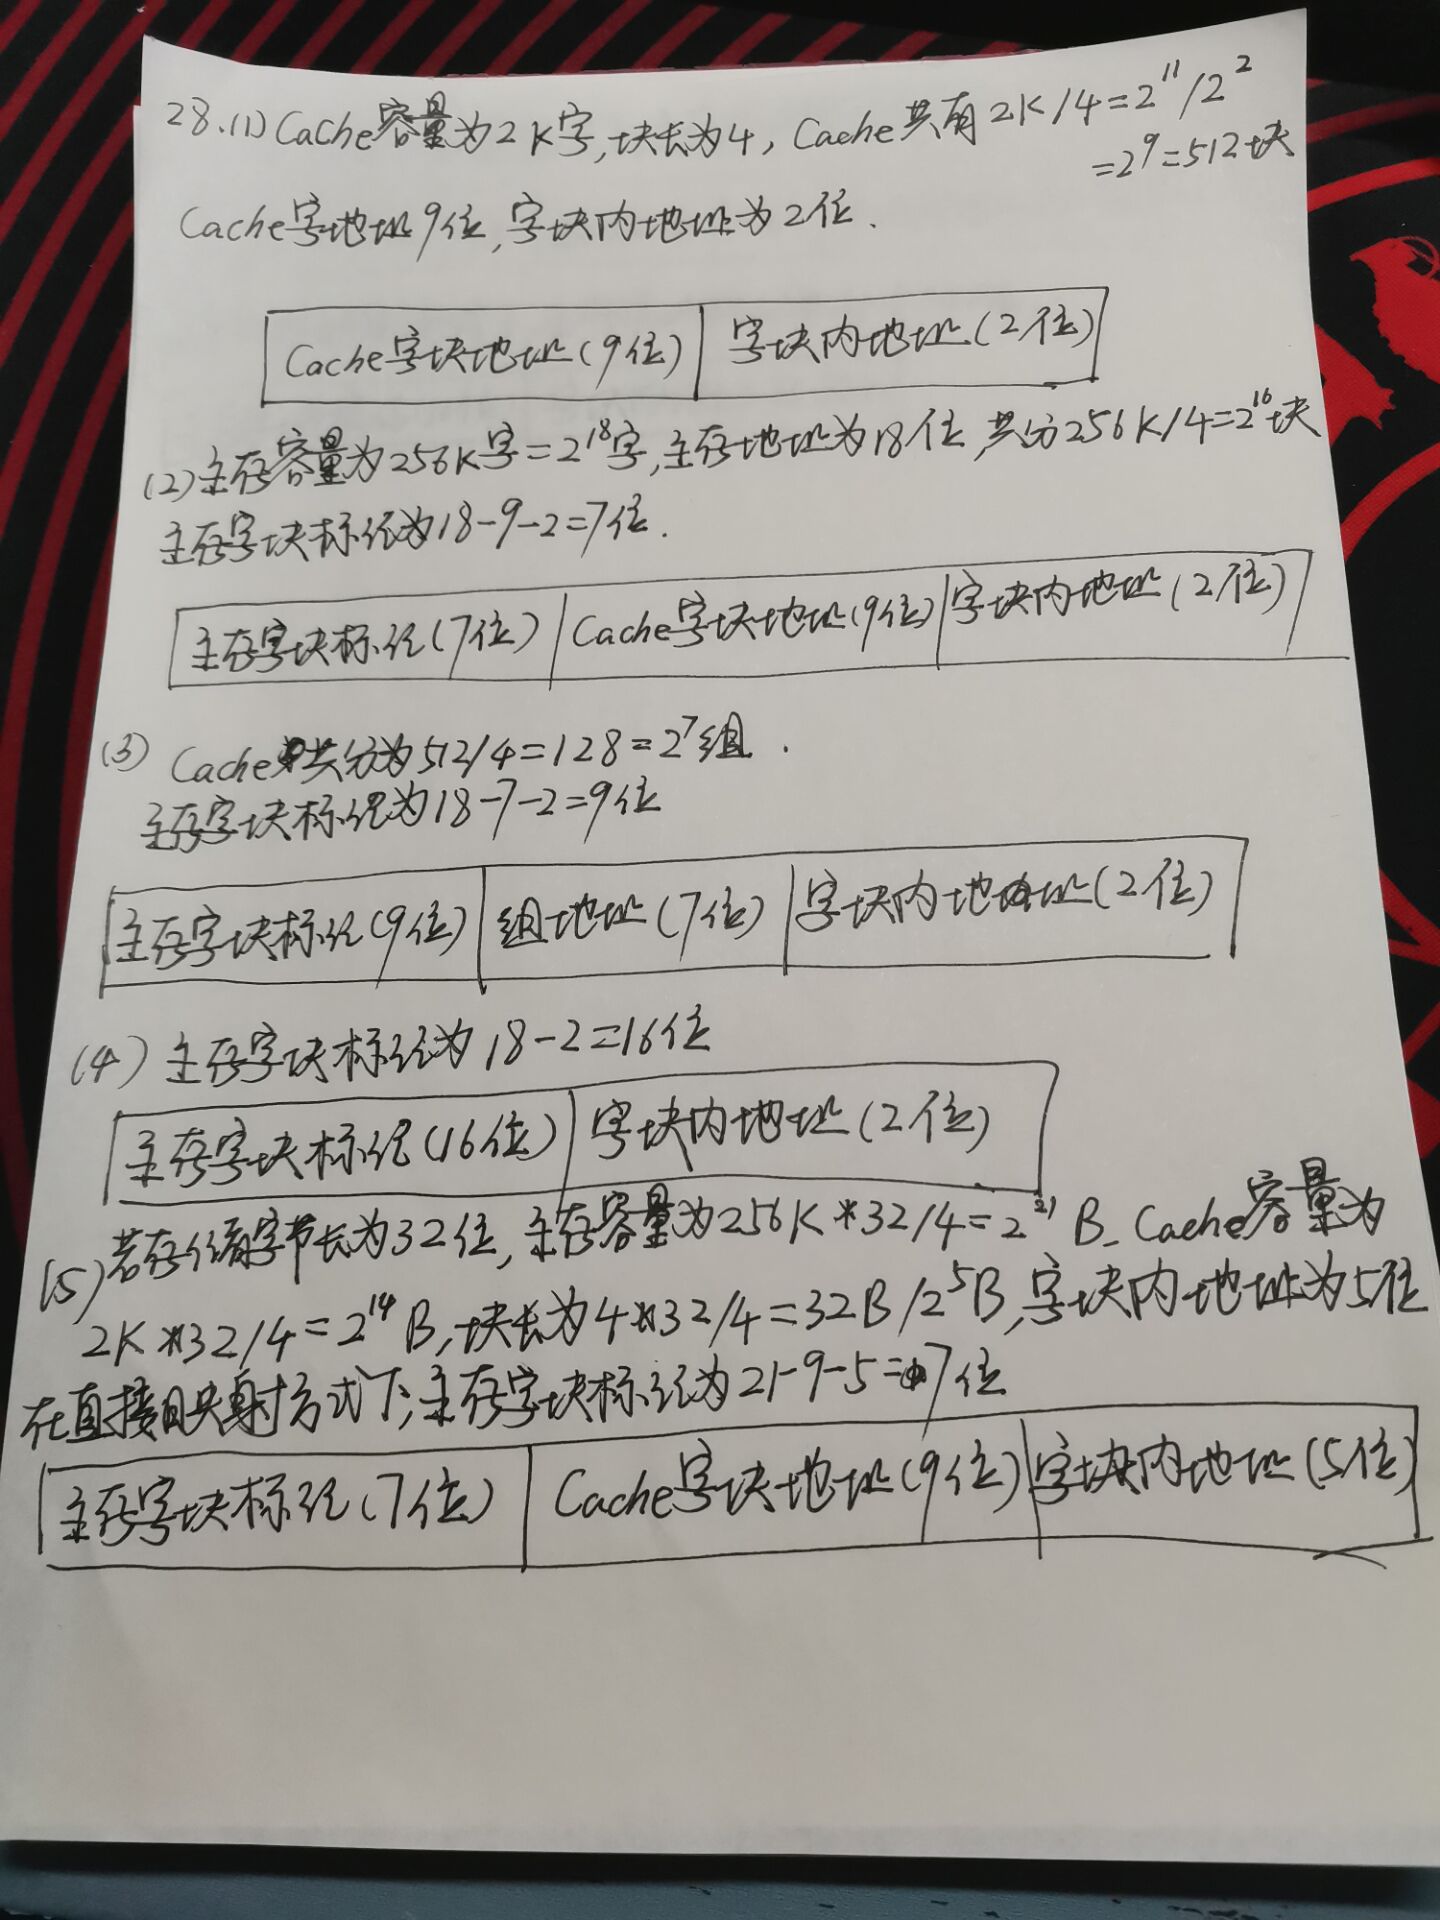 28.(1) Cache容量为2K字,块长为4, Cache共有2K/4=2¹¹/2²
=2⁹=512块
Cache字地址9位,字块内地址为2位.
Cache字块地址(9位) 字块内地址(2位)
(2)主存容量为256K字=2¹⁸字,主存地址为18位,共分256K/4=2¹⁶块
主存字块标记为18-9-2=7位.
主存字块标记(7位) Cache字块地址(9位) 字块内地址(2位)
(3) Cache共分为512/4=128=2⁷组.
主存字块标记为18-7-2=9位
主存字块标记(9位) 组地址(7位) 字块内地址(2位)
(4) 主存字块标记为18-2=16位
主存字块标记(16位) 字块内地址(2位)
(5)若存储字节长为32位,主存容量为256K*32/4=2²¹B. Cache容量为
2K*32/4=2¹⁴B,块长为4*32/4=32B/2⁵B,字块内地址为5位
在直接映射方式下,主存字块标记为21-9-5=7位
主存字块标记(7位) Cache字块地址(9位) 字块内地址(5位)